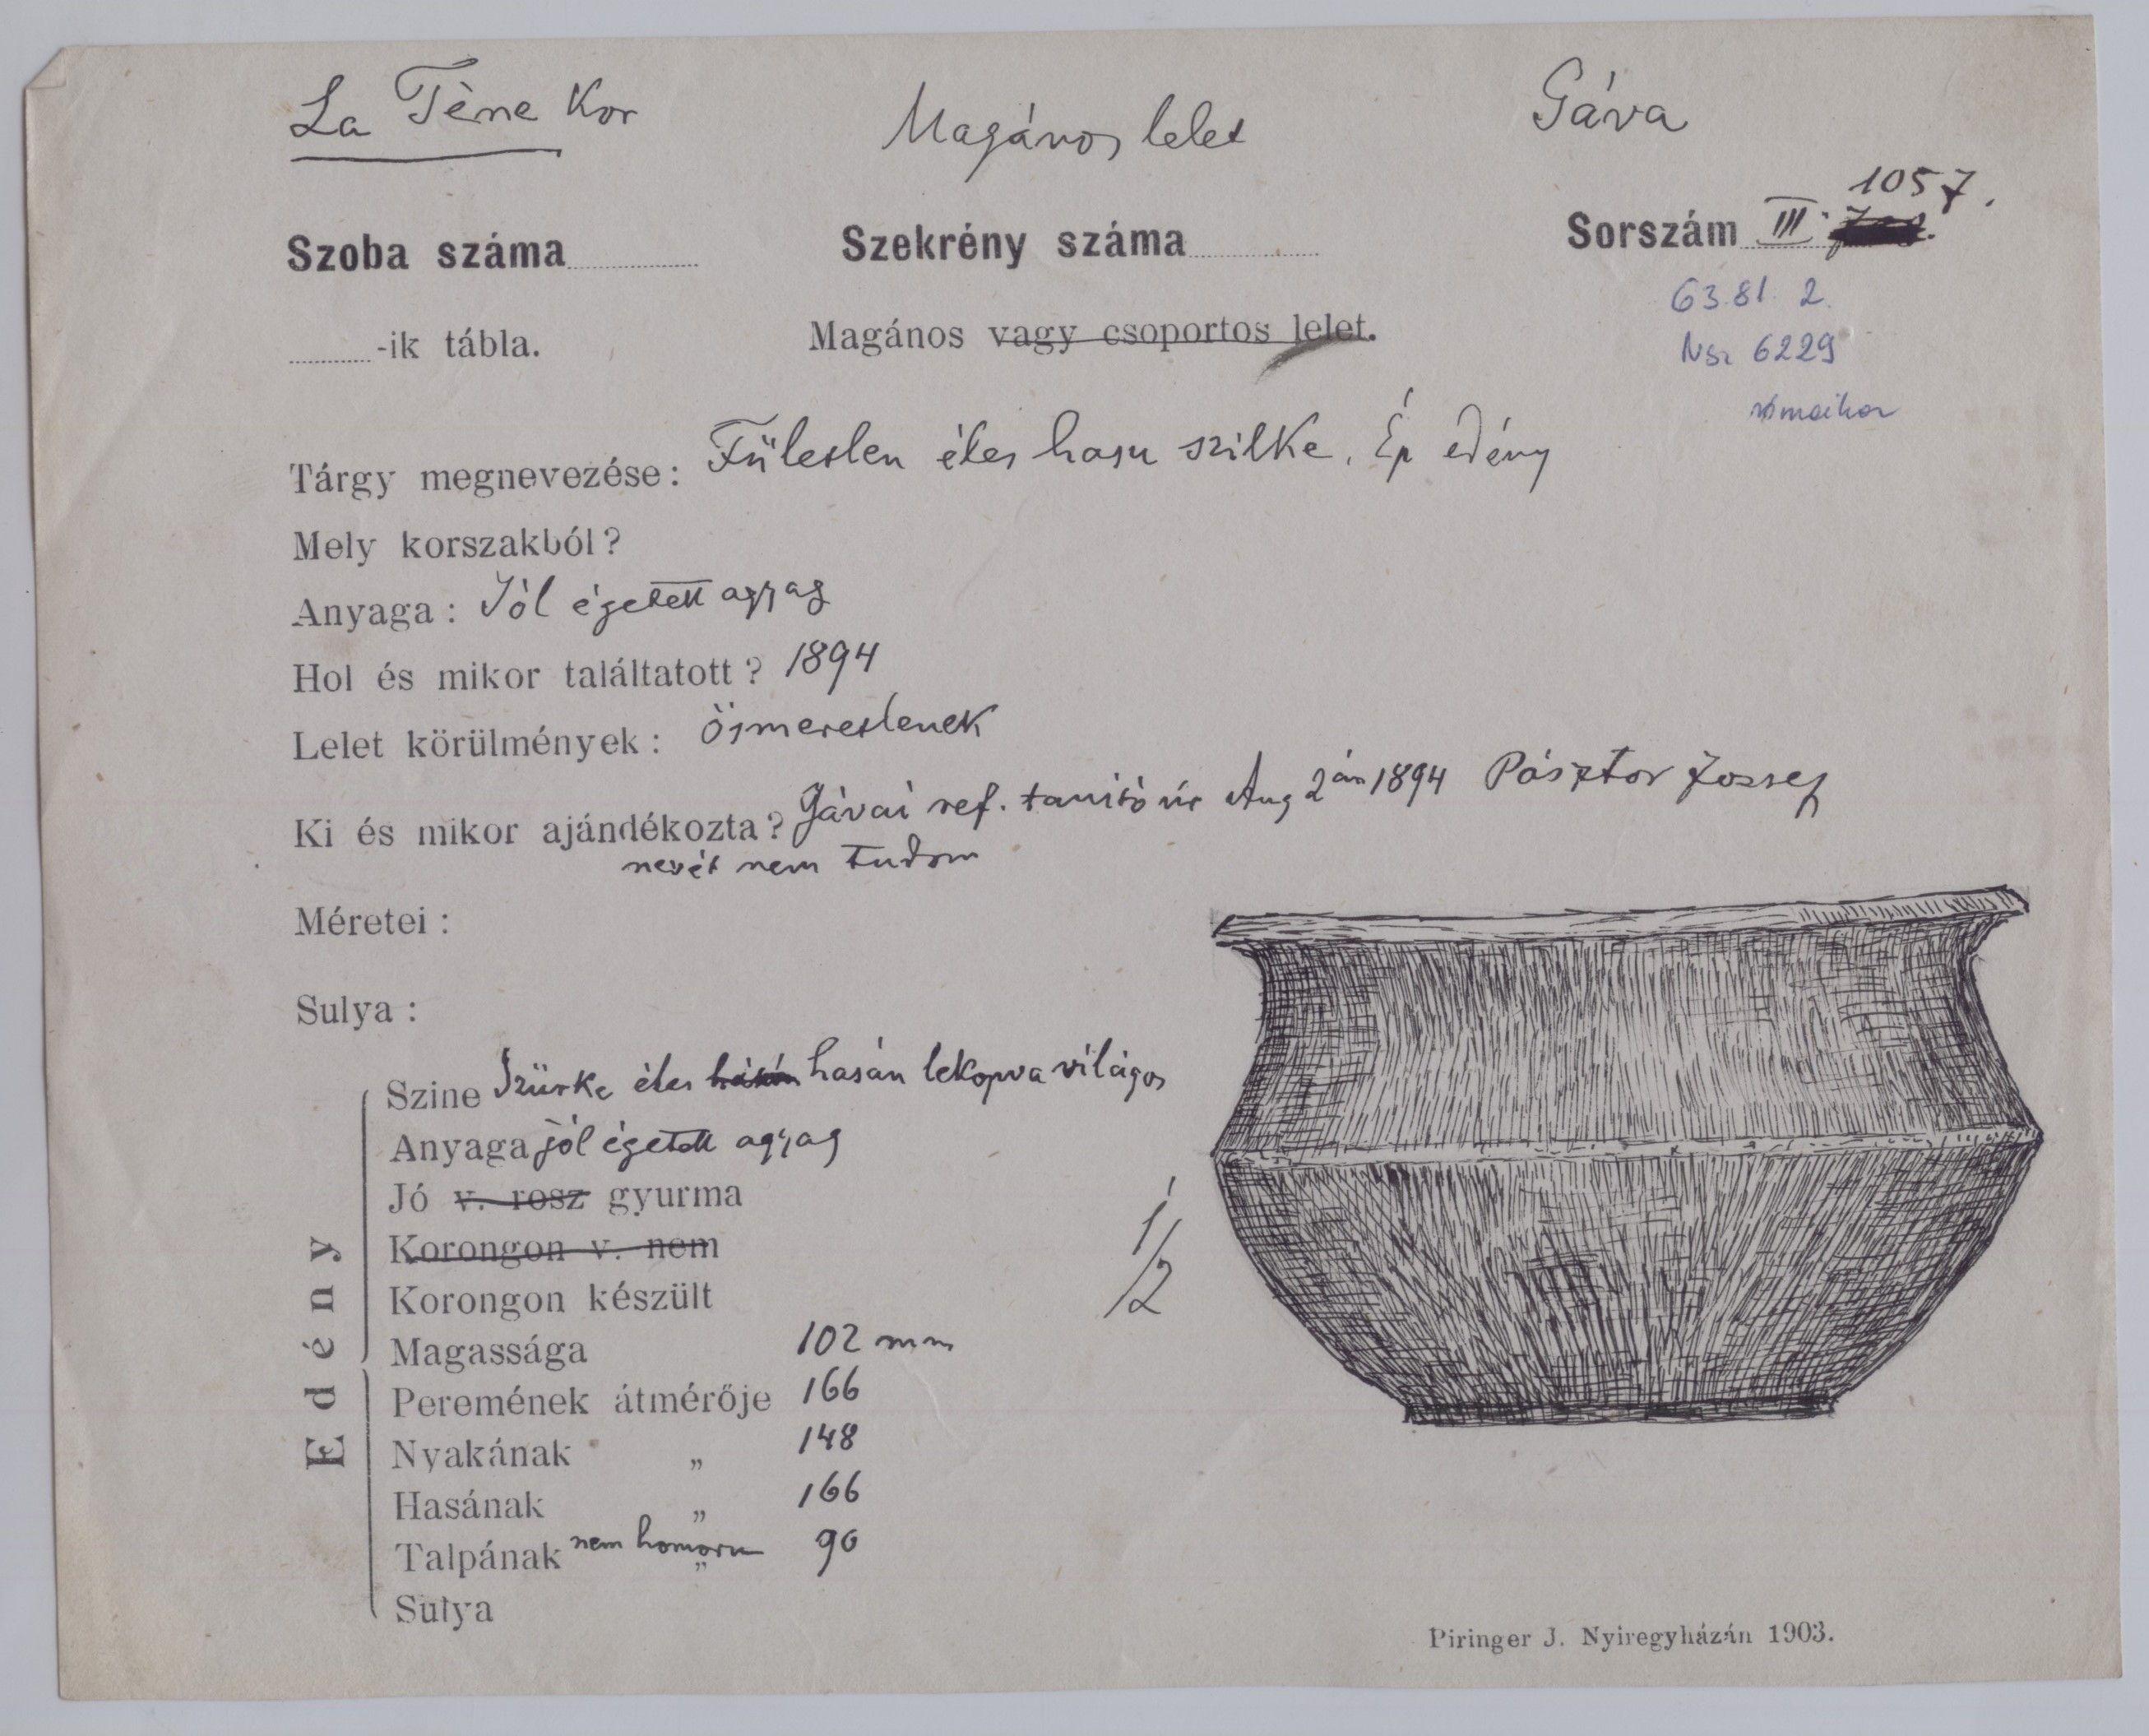 La Tène Kor
Magános lelet
Gáva
Szoba száma
Szekrény száma
Sorszám III. 1057.
63.81. 2.
Nsz 6229
rómaikor
-ik tábla.
Magános vagy csoportos lelet.
Tárgy megnevezése: Fületlen éles hasu szilke. Ép edény
Mely korszakból?
Anyaga: Jól égetett agyag
Hol és mikor találtatott? 1894
Lelet körülmények: ösmeretlenek
Ki és mikor ajándékozta? Gávai ref. tanító úr Aug 2án 1894 Pásztor József
nevét nem tudom
Méretei:
Sulya:
Edény
Szine Szürke éles hasán hasán lekopva világos
Anyaga jól égetett agyag
Jó v. rosz gyurma
Korongon v. nem
Korongon készült
Magassága 102 mm
Peremének átmérője 166
Nyakának „ 148
Hasának „ 166
Talpának nem homoru „ 90
Sulya
1/2
Piringer J. Nyiregyházán 1903.